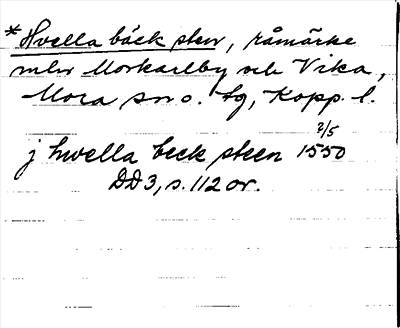 *Hvella bäck sten, råmärke
mlw Morkarlby och Vika,
Mora sn o. tg, Kopp. l.
j hwella beck steen 2/5 1550
DD3, s. 112 or.